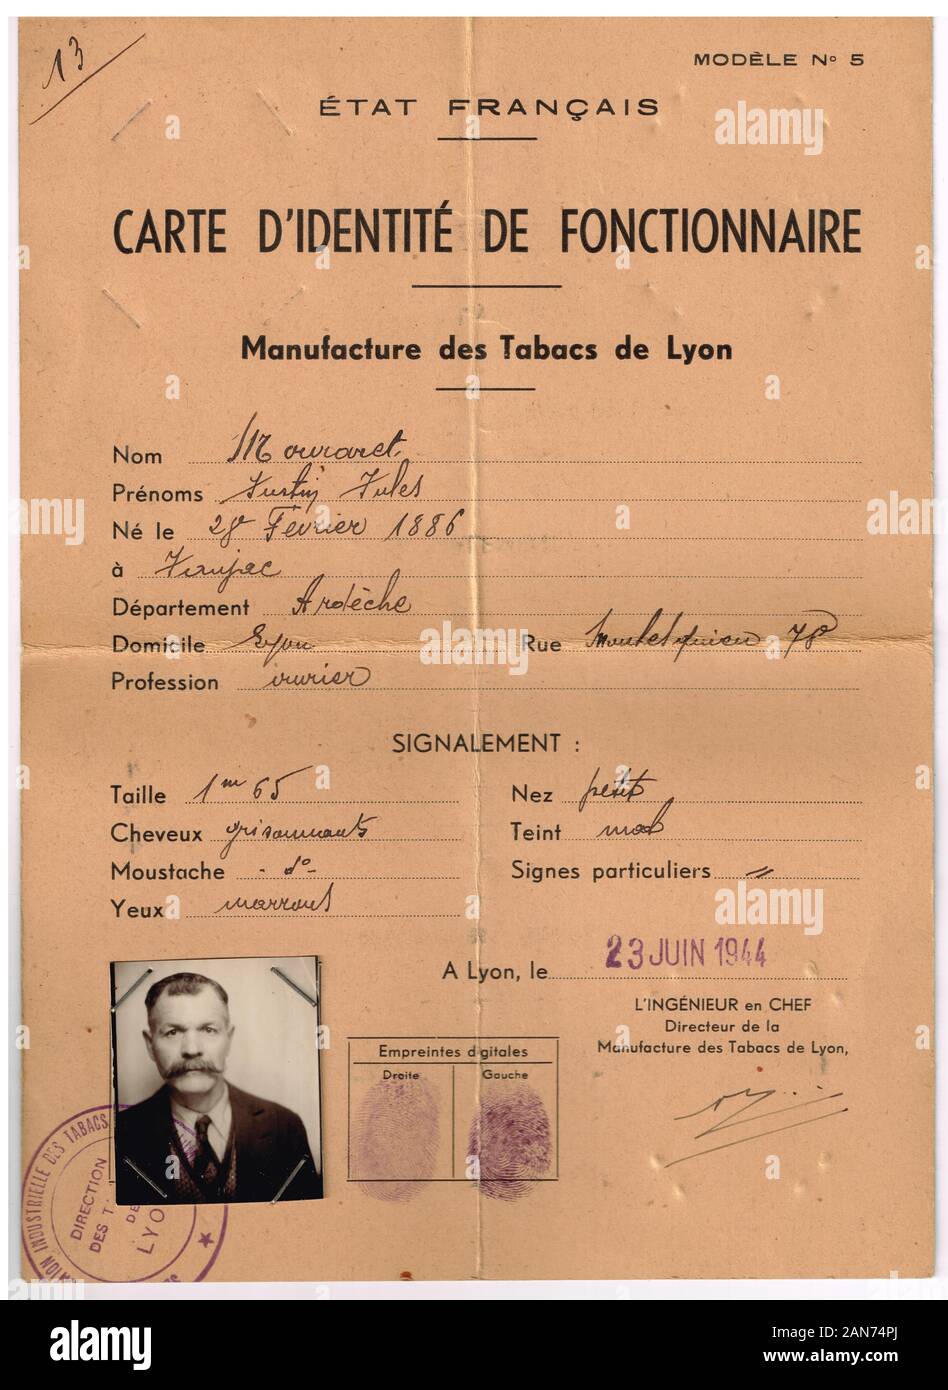 13
MODÈLE Nº 5
ÉTAT FRANÇAIS
CARTE D'IDENTITÉ DE FONCTIONNAIRE
Manufacture des Tabacs de Lyon
Nom Mouraret
Prénoms Justin Jules
Né le 28 Février 1886
à Jaujac
Département Ardèche
Domicile Lyon Rue 78
Profession ouvrier
SIGNALEMENT :
Taille 1m 65 Nez petit
Cheveux grisonnants Teint mat
Moustache - dº - Signes particuliers =
Yeux marrons
A Lyon, le 23 JUIN 1944
L'INGÉNIEUR en CHEF
Directeur de la
Manufacture des Tabacs de Lyon,
Empreintes digitales
Droite Gauche
INDUSTRIELLE DES TABACS
DIRECTION
DES T
DE
LYO
alamy
Image ID: 2AN74PJ
www.alamy.com